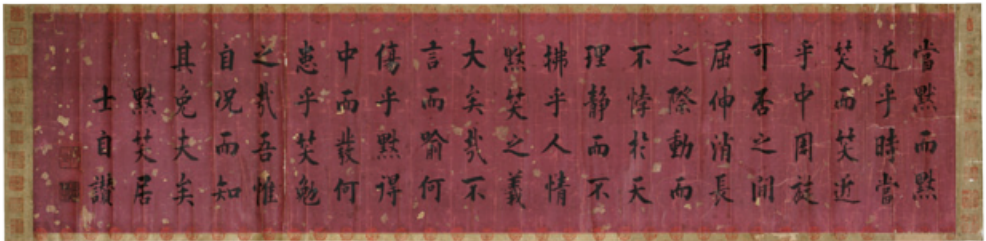 當默而默
近乎時當
笑而笑近
乎中周旋
可否之間
屈伸消長
之際動而
不悖於天
理靜而不
拂乎人情
默笑之義
大矣哉不
言而喻何
傷乎默得
中而發何
患乎笑勉
之哉吾惟
自况而知
其免夫矣
默笑居
士自讚